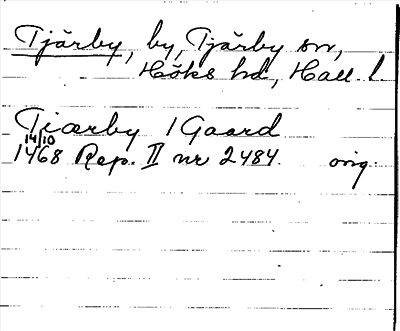 Tjärby, by, Tjärby sn,
Höks hd, Hall. l.
Tiærby 1 Gaard
14/10
1468 Rep. II nr 2484. orig.